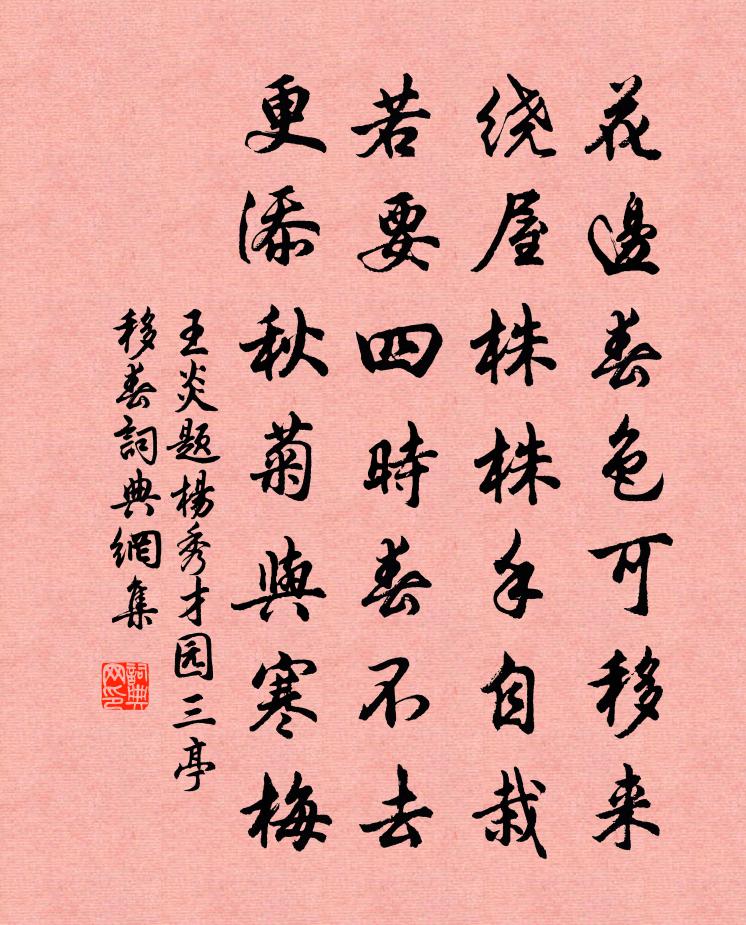 花邊春色可移来
绕屋株株手自栽
若要四時春不去
更添秋菊與寒梅
王炎题楊秀才园三亭
移春詞典網集
詞典
网印